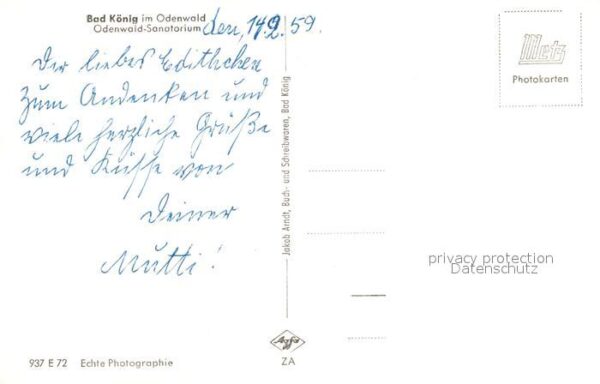 Bad König im Odenwald
Odenwald-Sanatorium
den, 14.2.59.
Der liebes Edithchen
zum Andenken und
viele herzliche Grüße
und Küsse von
Deiner
Mutti!
Jakob Arndt, Buch- und Schreibwaren, Bad König
Metz
Photokarten
privacy protection
Datenschutz
Agfa
ZA
937 E 72 Echte Photographie